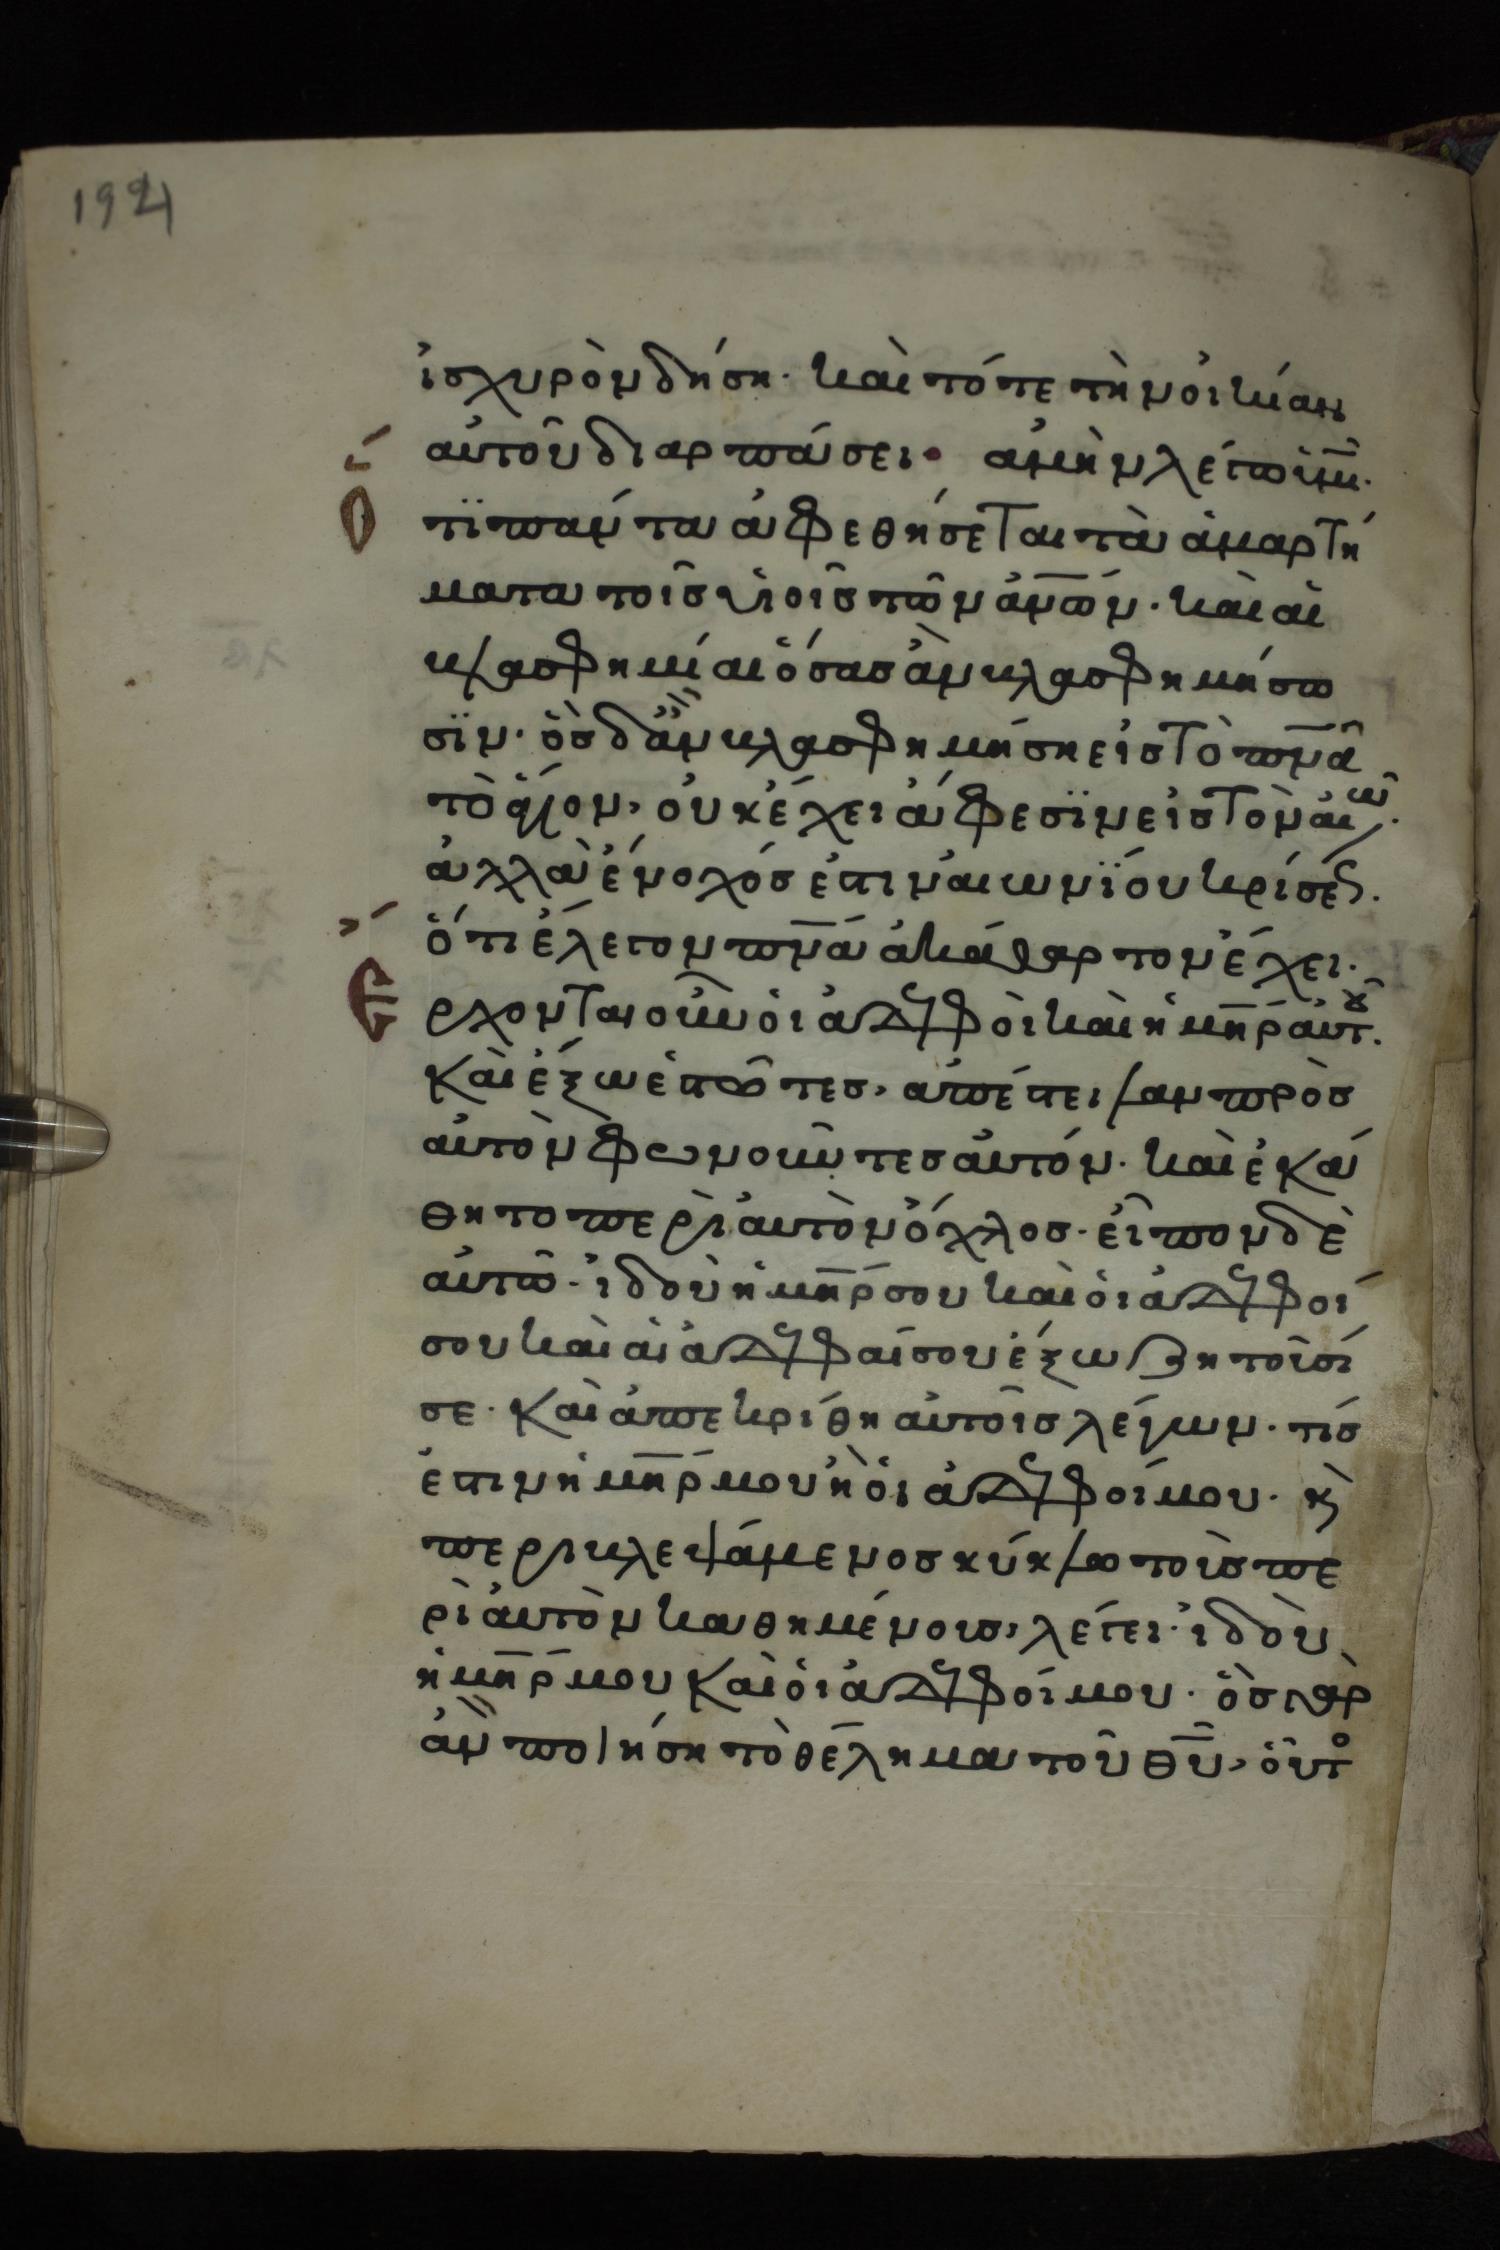 1921
ἰσχυρὸν δήση· καὶ τότε τὴν οἰκίαν
αὐτοῦ διαρπάσει· ἀμὴν λέγω ὑμῖν·
Ὅτι πάντα ἀφεθήσεται τὰ ἁμαρτή
ματα τοῖς υἱοῖς τῶν ἀνων· καὶ αἱ
βλασφημίαι ὅσας ἂν βλασφημήσω
σϊν· ὃς δ' ἂν βλασφημήση εἰς τὸ πνα
τὸ ἅγιον, οὐκ ἔχει ἄφεσϊν εἰς τὸν αἰῶ·
ἀλλὰ ἔνοχός ἐστιν αἰωνΐου κρίσεως·
ὅτι ἔλεγον πνα ἀκάθαρτον ἔχει·
Ἔρχονται οὖν οἱ ἀδελφοὶ καὶ ἡ μηρ αὐτοῦ·
καὶ ἔξω ἑστῶτες, ἀπέστειλαν πρὸς
αὐτὸν φωνοῦντες αὐτόν· καὶ ἐκά
θητο περὶ αὐτὸν ὄχλος· εἶπον δὲ
αὐτῶ· ἰδοὺ ἡ μηρ σου καὶ οἱ ἀδελφοί
σου καὶ αἱ ἀδελφαί σου ἔξω ζητοῦσί
σε· καὶ ἀπεκρίθη αὐτοῖς λέγων· τίς
ἐστιν ἡ μηρ μου ἢ οἱ ἀδελφοί μου· κὶ
περιβλεψάμενος κύκλω τοὺς πε
ρὶ αὐτὸν καθημένους, λέγει· ἰδοὺ
ἡ μηρ μου καὶ οἱ ἀδελφοί μου· ὃς γὰρ
ἂν ποιήση τὸ θέλημα τοῦ θυ, οὗτο